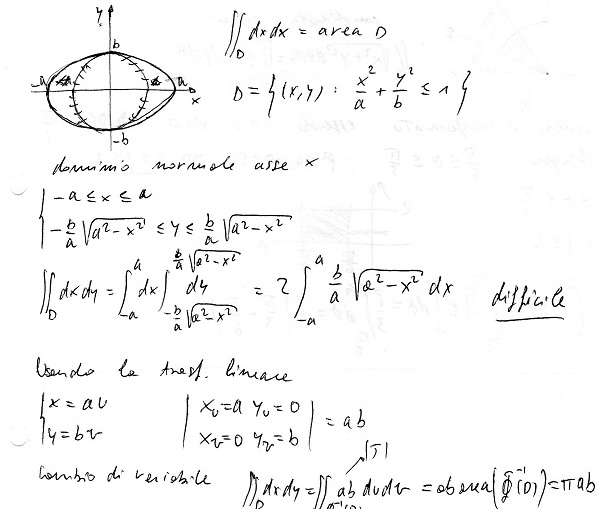 y
b
-a a
x
-b
∬_D dxdx = area D
D = { (x,y) : x²/a + y²/b ≤ 1 }
dominio normale asse x
{ -a ≤ x ≤ a
-b/a √(a²-x²) ≤ y ≤ b/a √(a²-x²)
∬_D dxdy = ∫_{-a}^{a} dx ∫_{-b/a √(a²-x²)}^{b/a √(a²-x²)} dy = 2 ∫_{-a}^{a} b/a √(a²-x²) dx difficile
Usando la trasf. lineare
{ x = au | x_u = a y_u = 0 |
y = bv | x_v = 0 y_v = b | = ab
|J|
Cambio di variabile ∬_D dxdy = ∬_{Φ⁻¹(D)} ab du dv = ab area(Φ⁻¹(D)) = πab